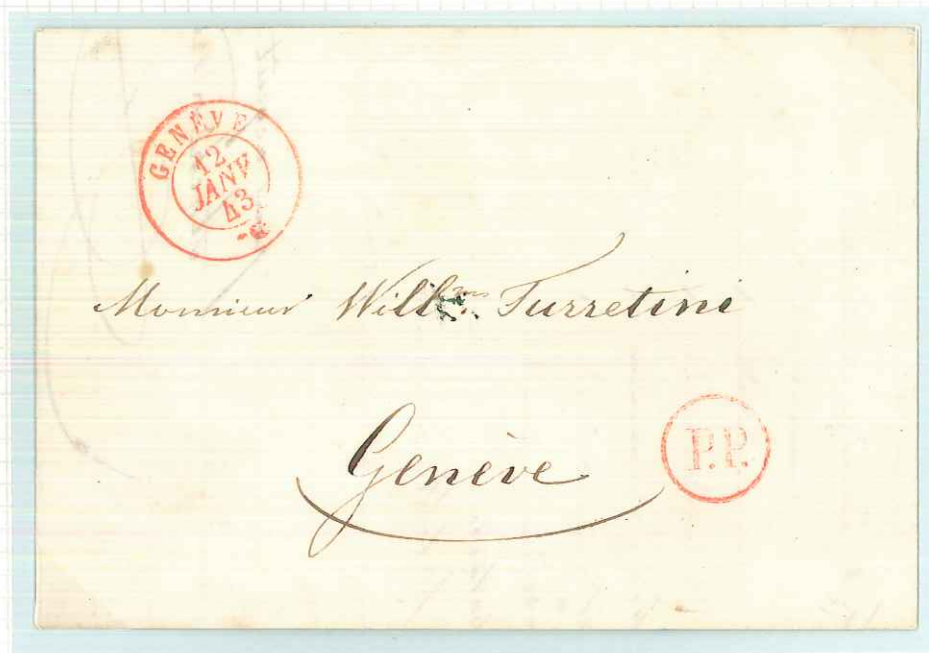 GENÈVE
12
JANV
43
Monsieur Willm Turretini
Genève
P.P.